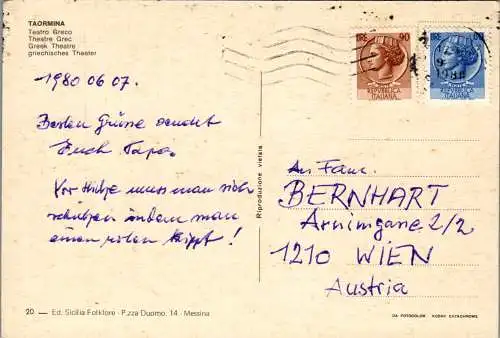 TAORMINA
Teatro Greco
Theatre Grec
Greek Theatre
griechisches Theater
1980 06 07.
Besten Grüsse sendet
Euch Papa.
Vor Hitze muss man sich
schützen indem man
einen roten kippt!
Riproduzione vietata
LIRE 90
REPUBBLICA
ITALIANA
REPUBBLICA
ITALIANA
An Fam.
BERNHART
Arnimgasse 2/2
1210 WIEN
Austria
20 — Ed. Sicilia Folklore - P.zza Duomo, 14 - Messina
DA FOTOCOLOR KODAK EKTACHROME